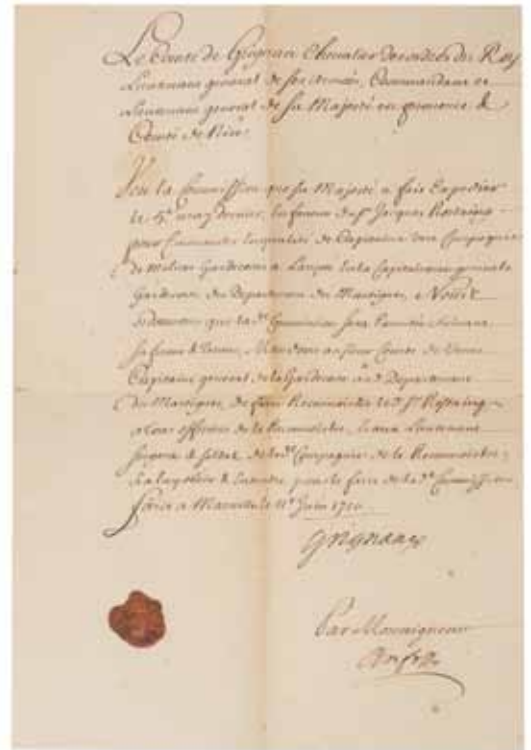 Le Comte de Grignan Chevalier des ordres du Roy
Lieutenant general de ses armées, Commandant et
Lieutenant general de Sa Majesté en provence &
Comté de Nice
Veu la Commission que Sa Majesté a fait Expedier
le 5e may dernier, En faveur du Sr Jacques Rostaing
pour Commander En qualité de Capitaine Une Compagnie
de milice Gardecoste a Lançon En la Capitainerie generale
Gardecoste du Departement du Martigues, Nous
ordonnons que lad. Commission sera Executée suivant
sa forme & teneur, Mandons au Sieur Comte de
Capitaine general de la Gardecoste aud. Departement
du Martigues, de faire Reconnoistre led. Sr Rostaing
aux officiers de le Reconnoistre, Et aux Lieutenant
sergens & soldats de lad. Compagnie de le Reconnoistre
& luy obeir & Entendre, pour le fait de lad. Commission
fait a Marseille le Juin 1710
Grignan
Par Monseigneur